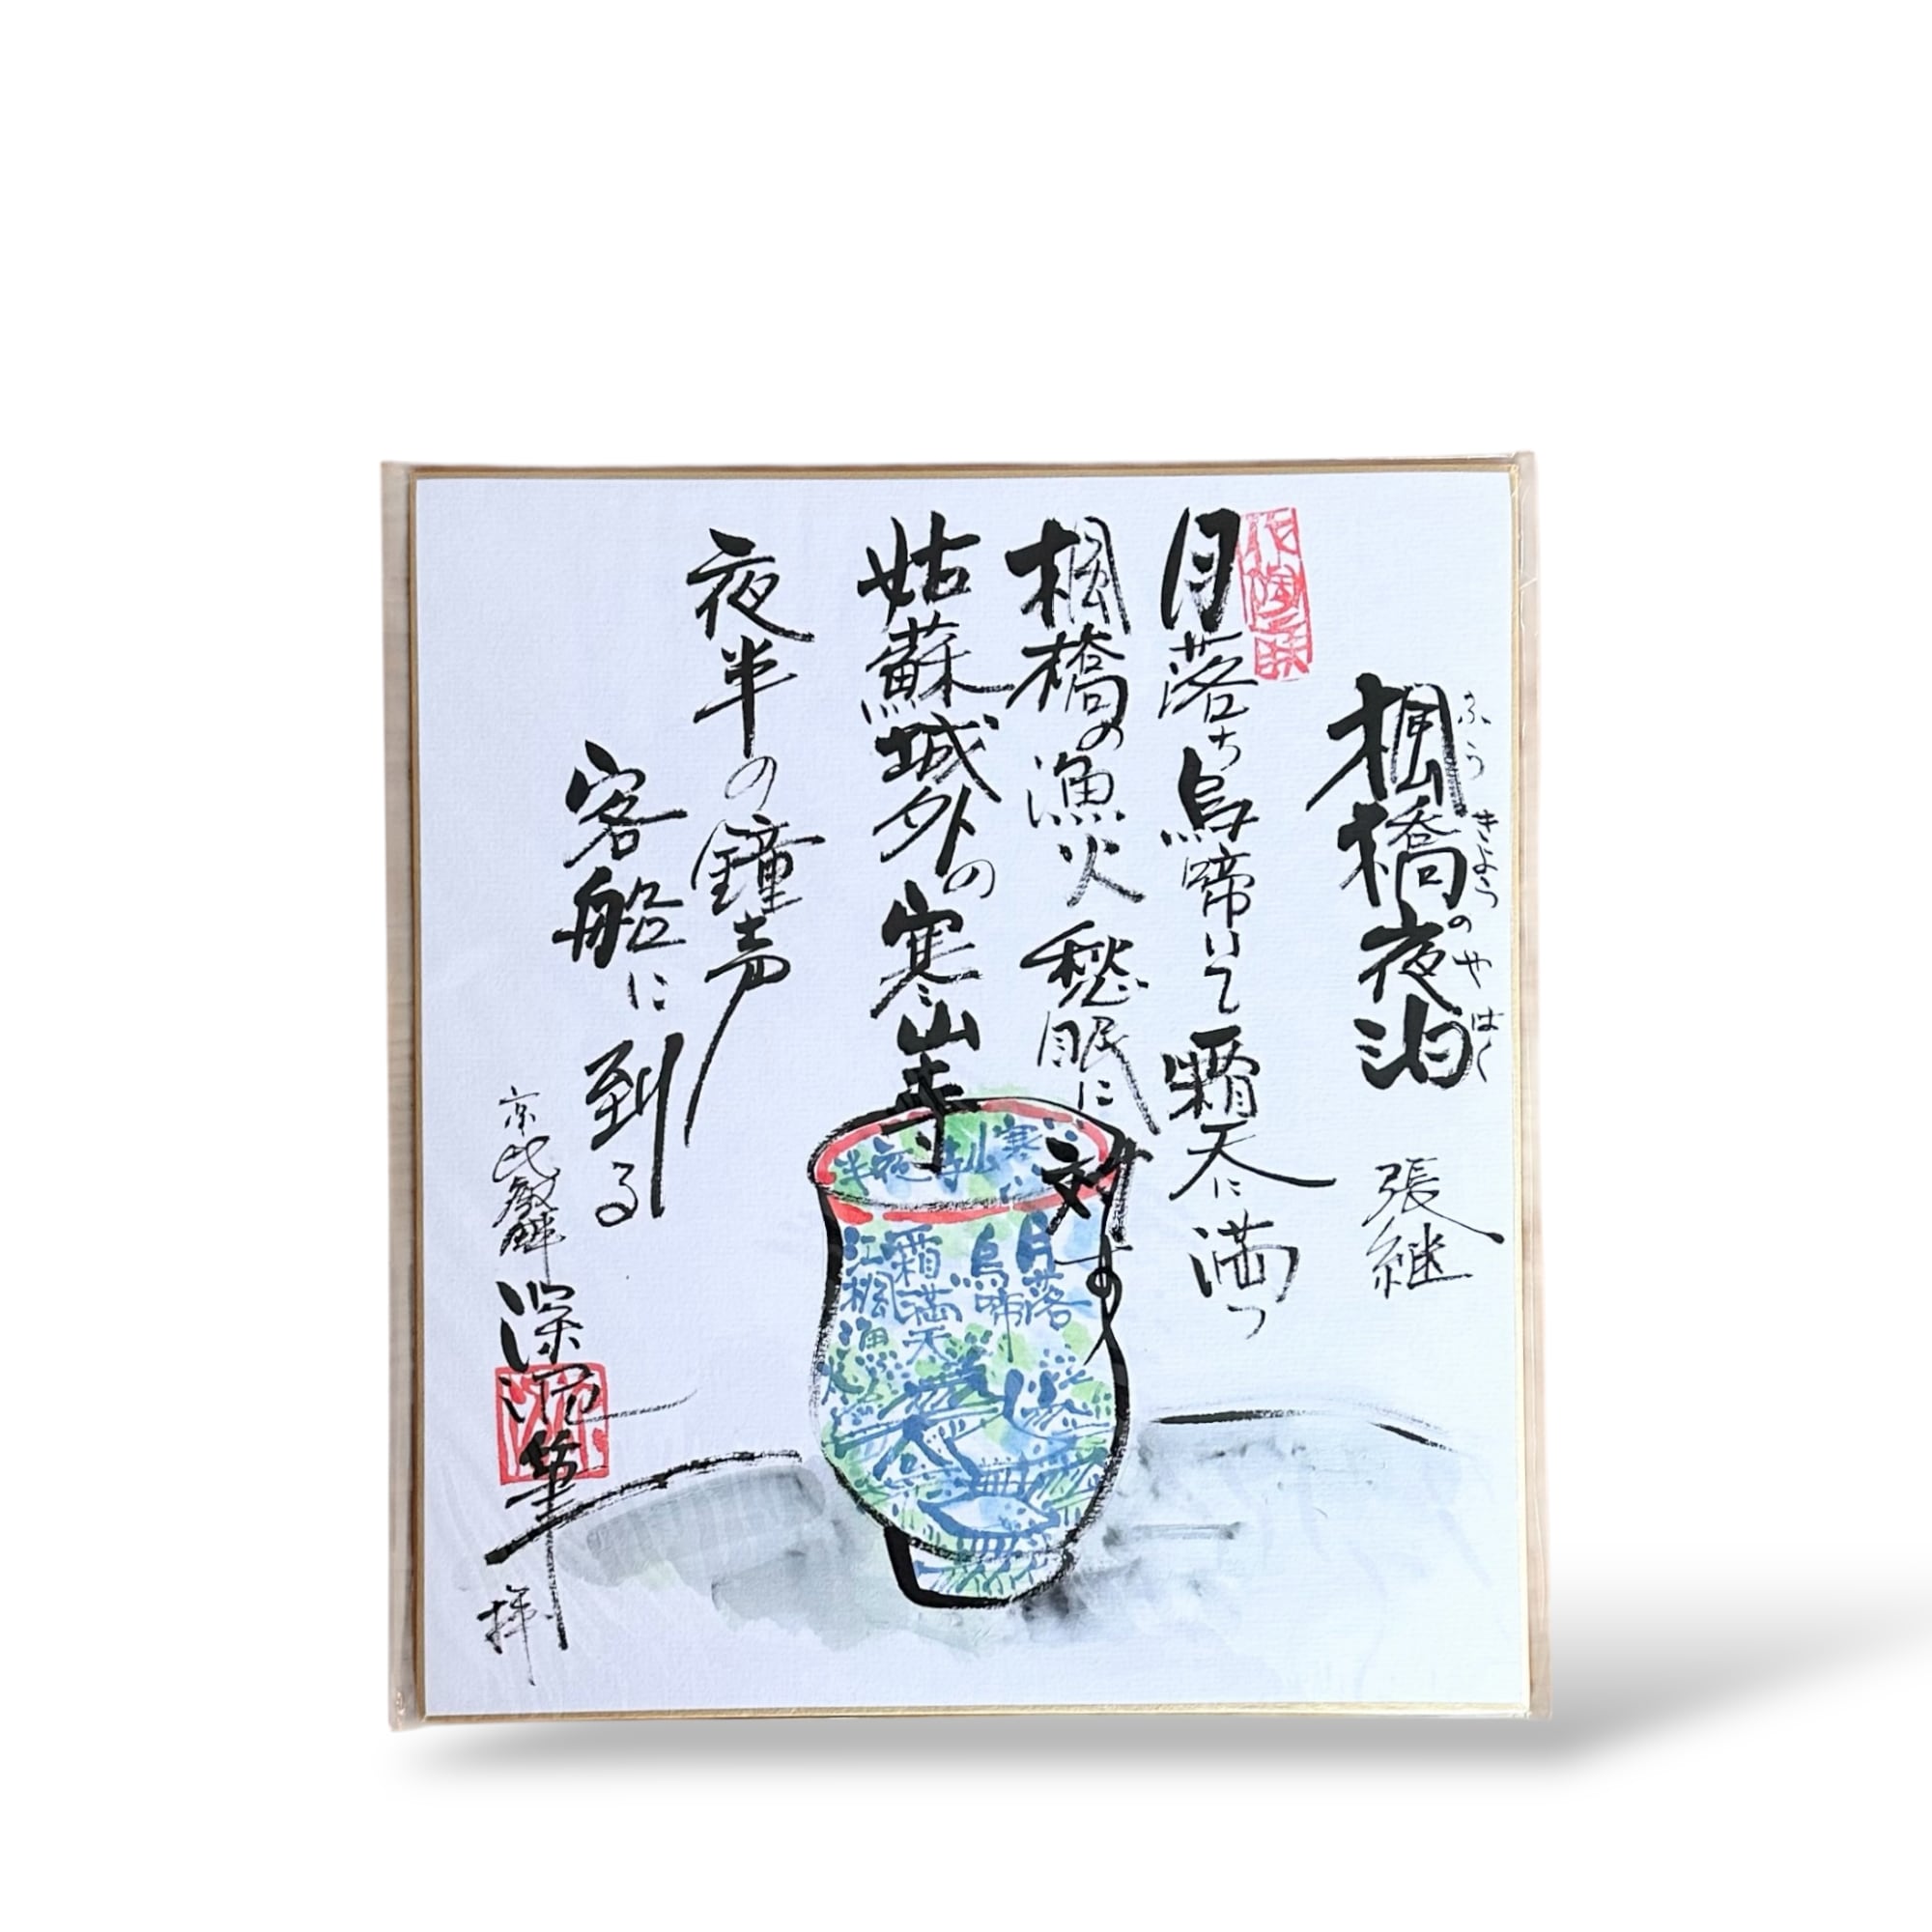 楓橋夜泊 張継
ふうきょうのやはく
月落ち烏啼いて霜天に満つ
楓橋の漁火愁眠に対す
姑蘇城外の寒山寺
夜半の鐘声
客船に到る
筆
拝
月落
烏啼
霜満天
江楓漁火
寒山寺
夜半